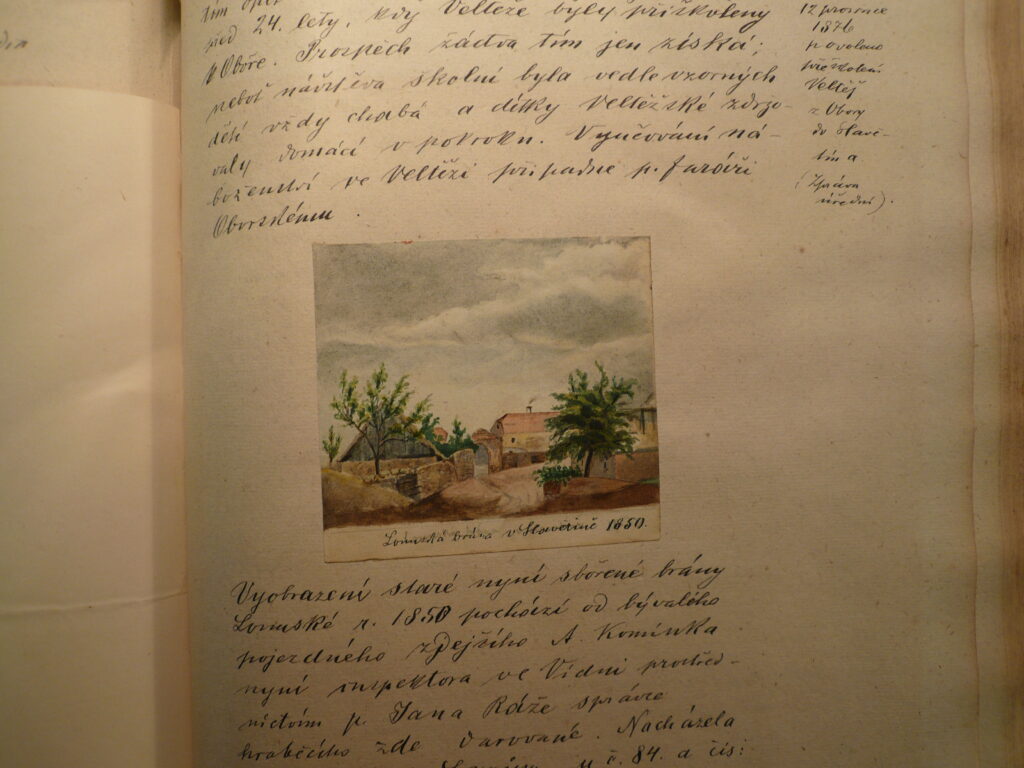 před 24. lety, kdy Veltěže byly přiškoleny
k Oboře. Prospěch žáctva tím jen získá;
neboť návštěva školní byla vedle vzorných
dětí vždy chabá a dítky Veltěžské zdržo-
valy domácí v pokroku. Vyučování ná-
boženství ve Veltěži připadne p. faráři
Oborskému.
12 prosince
1876
povoleno
přeškolení
Veltěž
z Obory
do Slavě-
tína
(Zpráva
úřední).
Lounská brána v Slavětíně 1850.
Vyobrazení staré nyní sbořené brány
Lounské r. 1850 pochází od bývalého
pojezdného zdejšího A. Kominka
nyní inspektora ve Vídni prostřed-
nictvím p. Jana Ráže správce
hraběcího zde darované. Nacházela
č. 84. a čís: